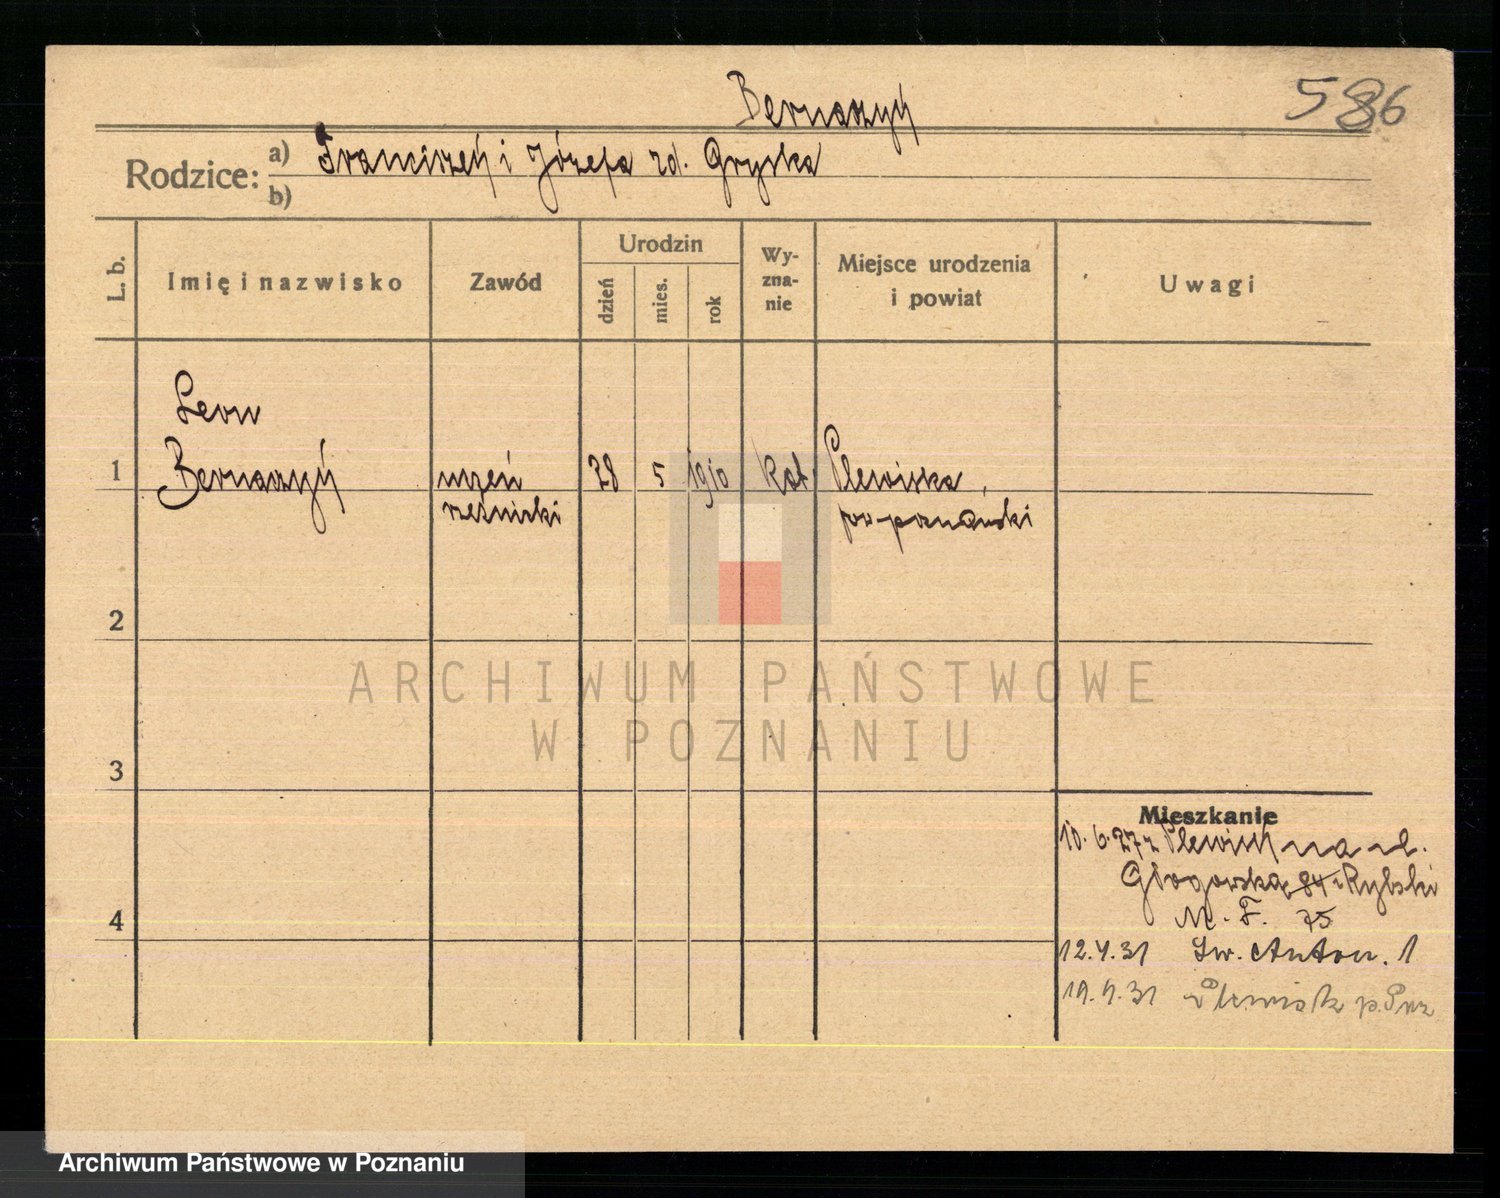 586
Bernaszyk
Rodzice: a) Franciszek i Józefa zd. Gryska
b)
L. b.
Imię i nazwisko
Zawód
Urodzin
dzień
mies.
rok
Wy-
zna-
nie
Miejsce urodzenia
i powiat
Uwagi
Leon
1 Bernaszyk uczeń 28 5 1910 kat Plewiska,
rzeźnicki pow poznański
2
ARCHIWUM PAŃSTWOWE
W POZNANIU
3
Mieszkanie
10.6.27 z Plewisk na ul.
Głogowska 84 Rybski
4 M. F. 75
12.4.31 Św. Anton. 1
19.9.31 Plewisk p. Pozn
Archiwum Państwowe w Poznaniu